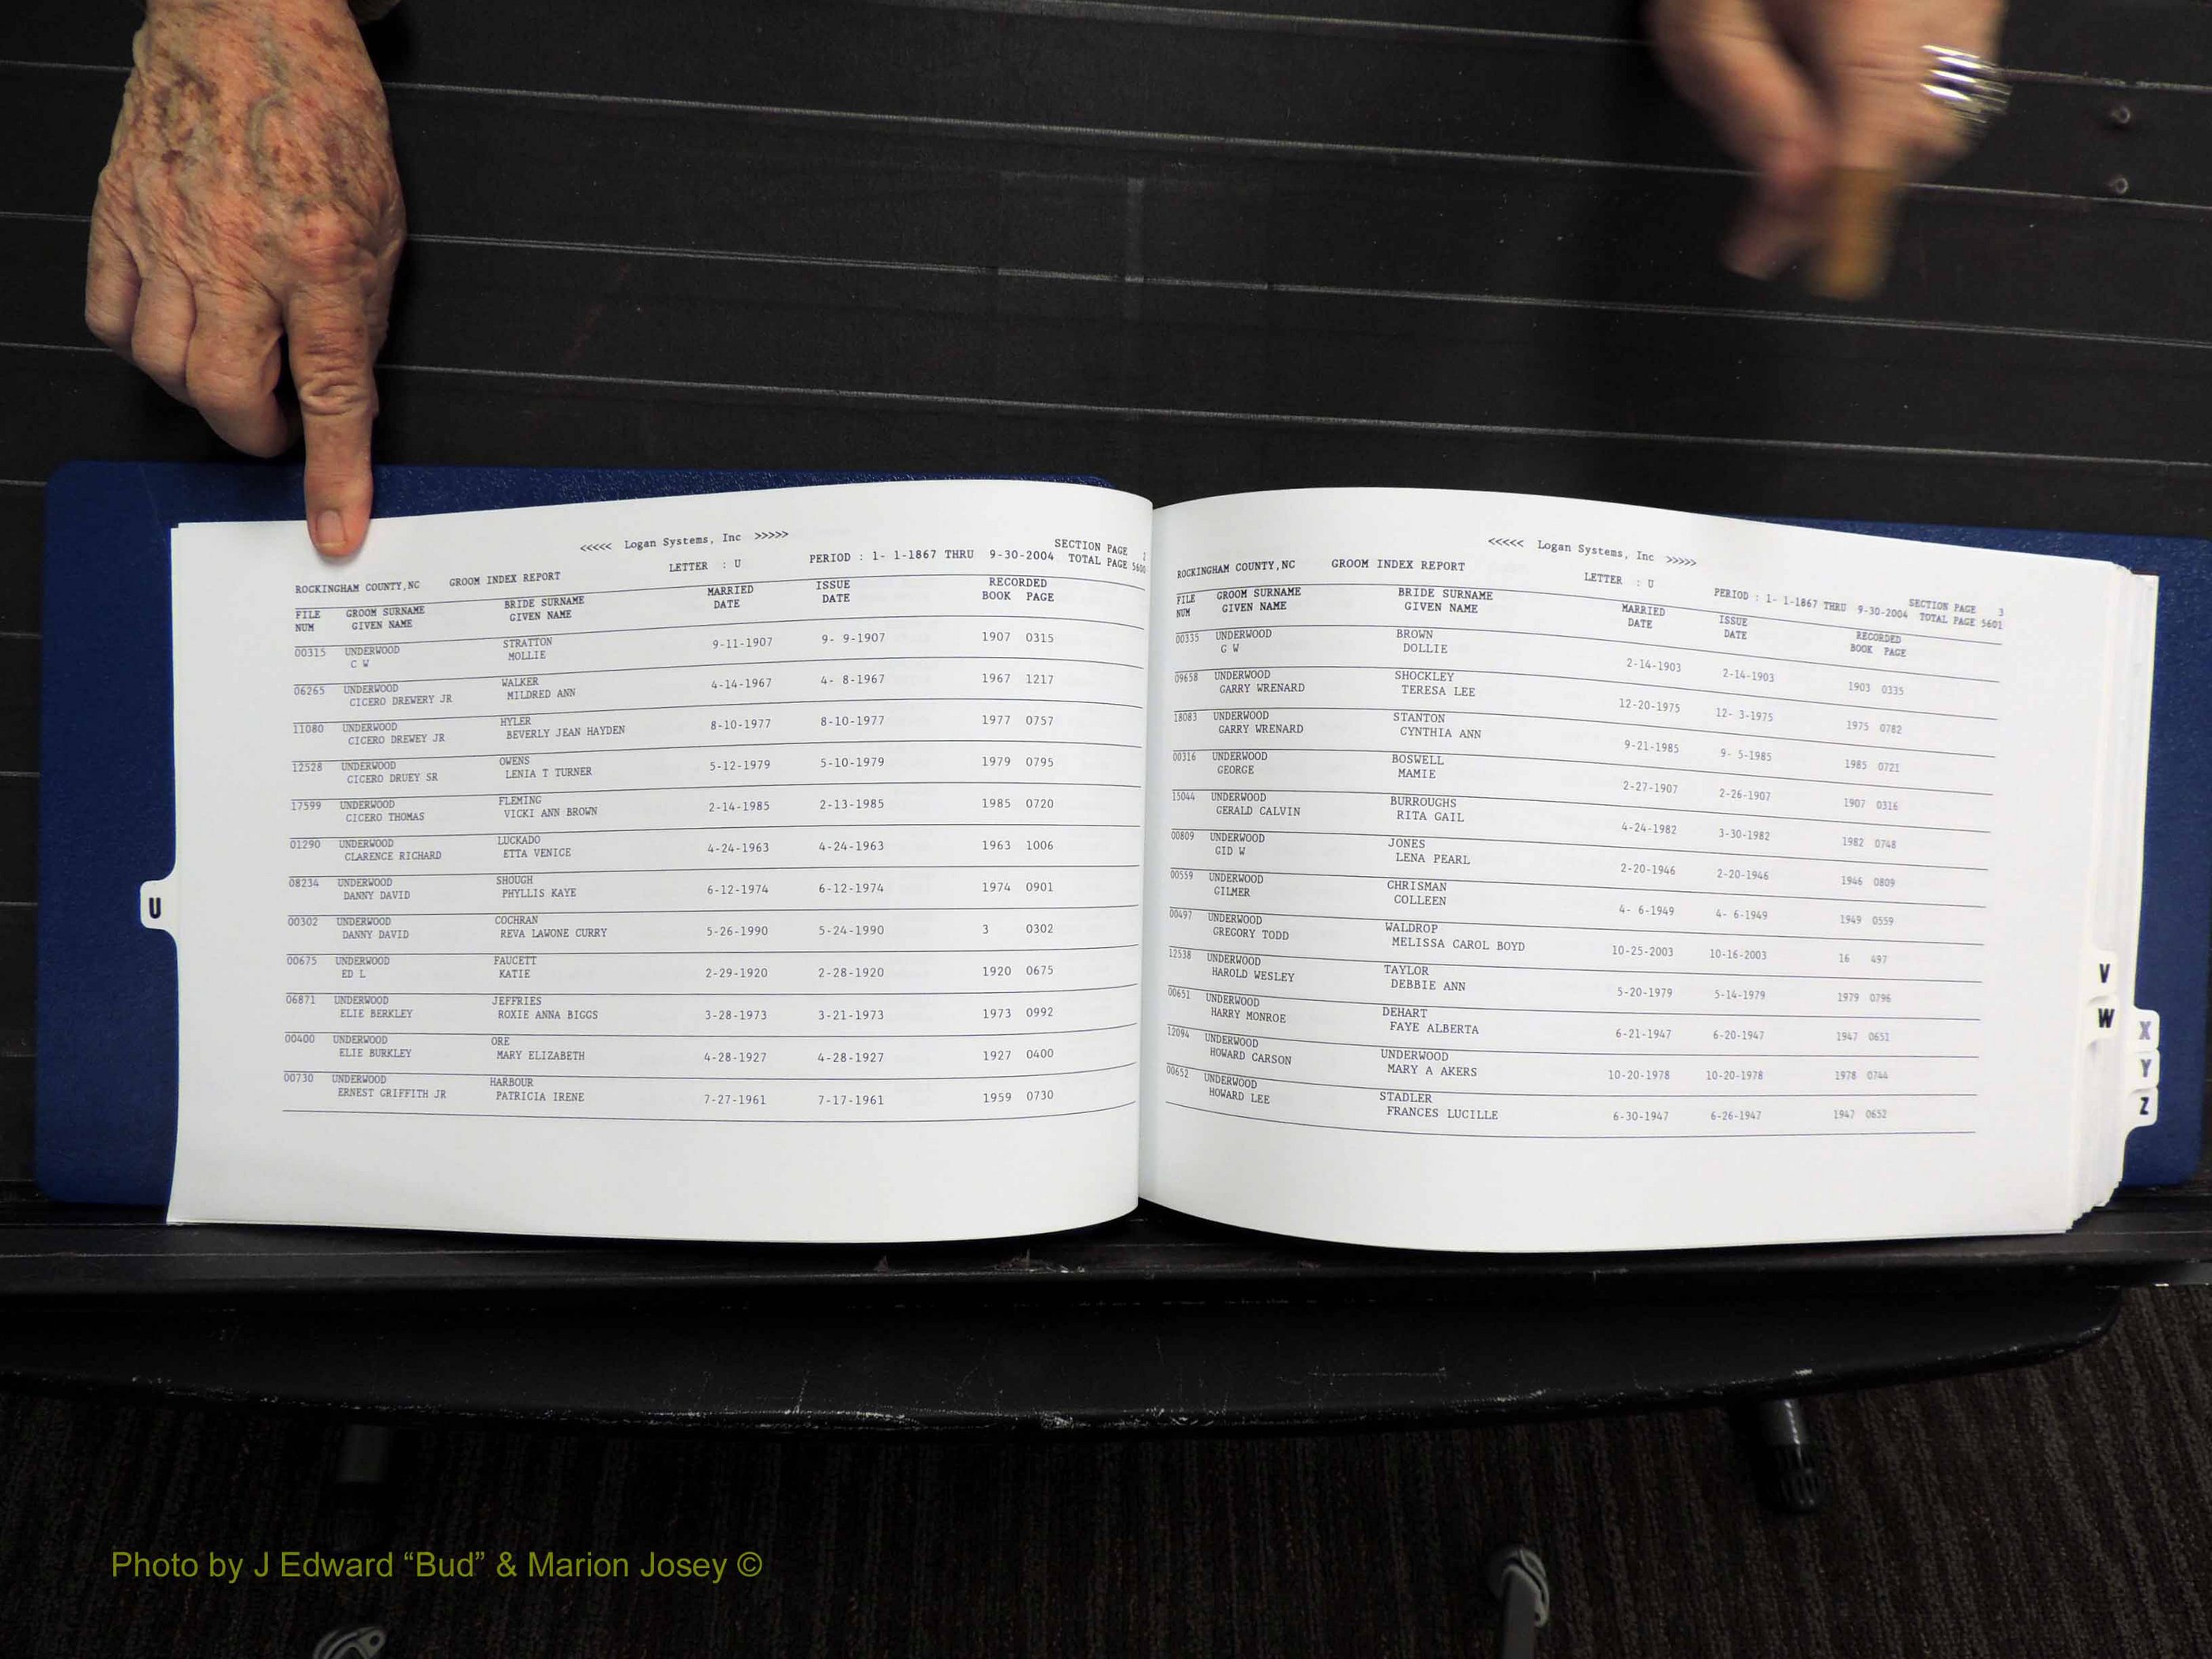 <<<<< Logan Systems, Inc >>>>>
SECTION PAGE
ROCKINGHAM COUNTY,NC GROOM INDEX REPORT LETTER : U PERIOD : 1- 1-1867 THRU 9-30-2004 TOTAL PAGE 5600
FILE GROOM SURNAME BRIDE SURNAME MARRIED ISSUE RECORDED
NUM GIVEN NAME GIVEN NAME DATE DATE BOOK PAGE
00315 UNDERWOOD STRATTON 9-11-1907 9- 9-1907 1907 0315
C W MOLLIE
06265 UNDERWOOD WALKER 4-14-1967 4- 8-1967 1967 1217
CICERO DREWERY JR MILDRED ANN
11080 UNDERWOOD HYLER 8-10-1977 8-10-1977 1977 0757
CICERO DREWEY JR BEVERLY JEAN HAYDEN
12528 UNDERWOOD OWENS 5-12-1979 5-10-1979 1979 0795
CICERO DRUEY SR LENIA T TURNER
17599 UNDERWOOD FLEMING 2-14-1985 2-13-1985 1985 0720
CICERO THOMAS VICKI ANN BROWN
01290 UNDERWOOD LUCKADO 4-24-1963 4-24-1963 1963 1006
CLARENCE RICHARD ETTA VENICE
08234 UNDERWOOD SHOUGH 6-12-1974 6-12-1974 1974 0901
DANNY DAVID PHYLLIS KAYE
00302 UNDERWOOD COCHRAN 5-26-1990 5-24-1990 3 0302
DANNY DAVID REVA LAWONE CURRY
00675 UNDERWOOD FAUCETT 2-29-1920 2-28-1920 1920 0675
ED L KATIE
06871 UNDERWOOD JEFFRIES 3-28-1973 3-21-1973 1973 0992
ELIE BERKLEY ROXIE ANNA BIGGS
00400 UNDERWOOD ORE 4-28-1927 4-28-1927 1927 0400
ELIE BURKLEY MARY ELIZABETH
00730 UNDERWOOD HARBOUR 7-27-1961 7-17-1961 1959 0730
ERNEST GRIFFITH JR PATRICIA IRENE
U
<<<<< Logan Systems, Inc >>>>>
SECTION PAGE 3
ROCKINGHAM COUNTY,NC GROOM INDEX REPORT LETTER : U PERIOD : 1- 1-1867 THRU 9-30-2004 TOTAL PAGE 5601
FILE GROOM SURNAME BRIDE SURNAME MARRIED ISSUE RECORDED
NUM GIVEN NAME GIVEN NAME DATE DATE BOOK PAGE
00335 UNDERWOOD BROWN 2-14-1903 2-14-1903 1903 0335
G W DOLLIE
09658 UNDERWOOD SHOCKLEY 12-20-1975 12- 3-1975 1975 0782
GARRY WRENARD TERESA LEE
18083 UNDERWOOD STANTON 9-21-1985 9- 5-1985 1985 0721
GARRY WRENARD CYNTHIA ANN
00316 UNDERWOOD BOSWELL 2-27-1907 2-26-1907 1907 0316
GEORGE MAMIE
15044 UNDERWOOD BURROUGHS 4-24-1982 3-30-1982 1982 0748
GERALD CALVIN RITA GAIL
00809 UNDERWOOD JONES 2-20-1946 2-20-1946 1946 0809
GID W LENA PEARL
00559 UNDERWOOD CHRISMAN 4- 6-1949 4- 6-1949 1949 0559
GILMER COLLEEN
00497 UNDERWOOD WALDROP 10-25-2003 10-16-2003 16 497
GREGORY TODD MELISSA CAROL BOYD
12538 UNDERWOOD TAYLOR 5-20-1979 5-14-1979 1979 0796
HAROLD WESLEY DEBBIE ANN
00651 UNDERWOOD DEHART 6-21-1947 6-20-1947 1947 0651
HARRY MONROE FAYE ALBERTA
12094 UNDERWOOD UNDERWOOD 10-20-1978 10-20-1978 1978 0744
HOWARD CARSON MARY A AKERS
00652 UNDERWOOD STADLER 6-30-1947 6-26-1947 1947 0652
HOWARD LEE FRANCES LUCILLE
V
W
X
Y
Z
Photo by J Edward “Bud” & Marion Josey ©